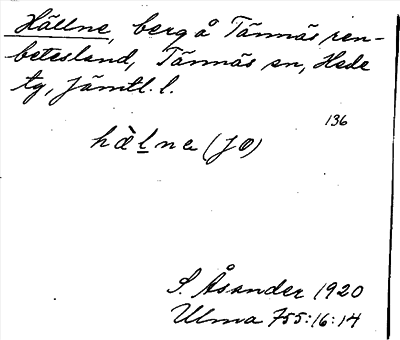 Hällne, berg å Tännäs ren-
betesland, Tännäs sn, Hede
tg, Jämtl. l.
136
hàlna (JÖ)
S. Åsander 1920
Ulma 755:16:14